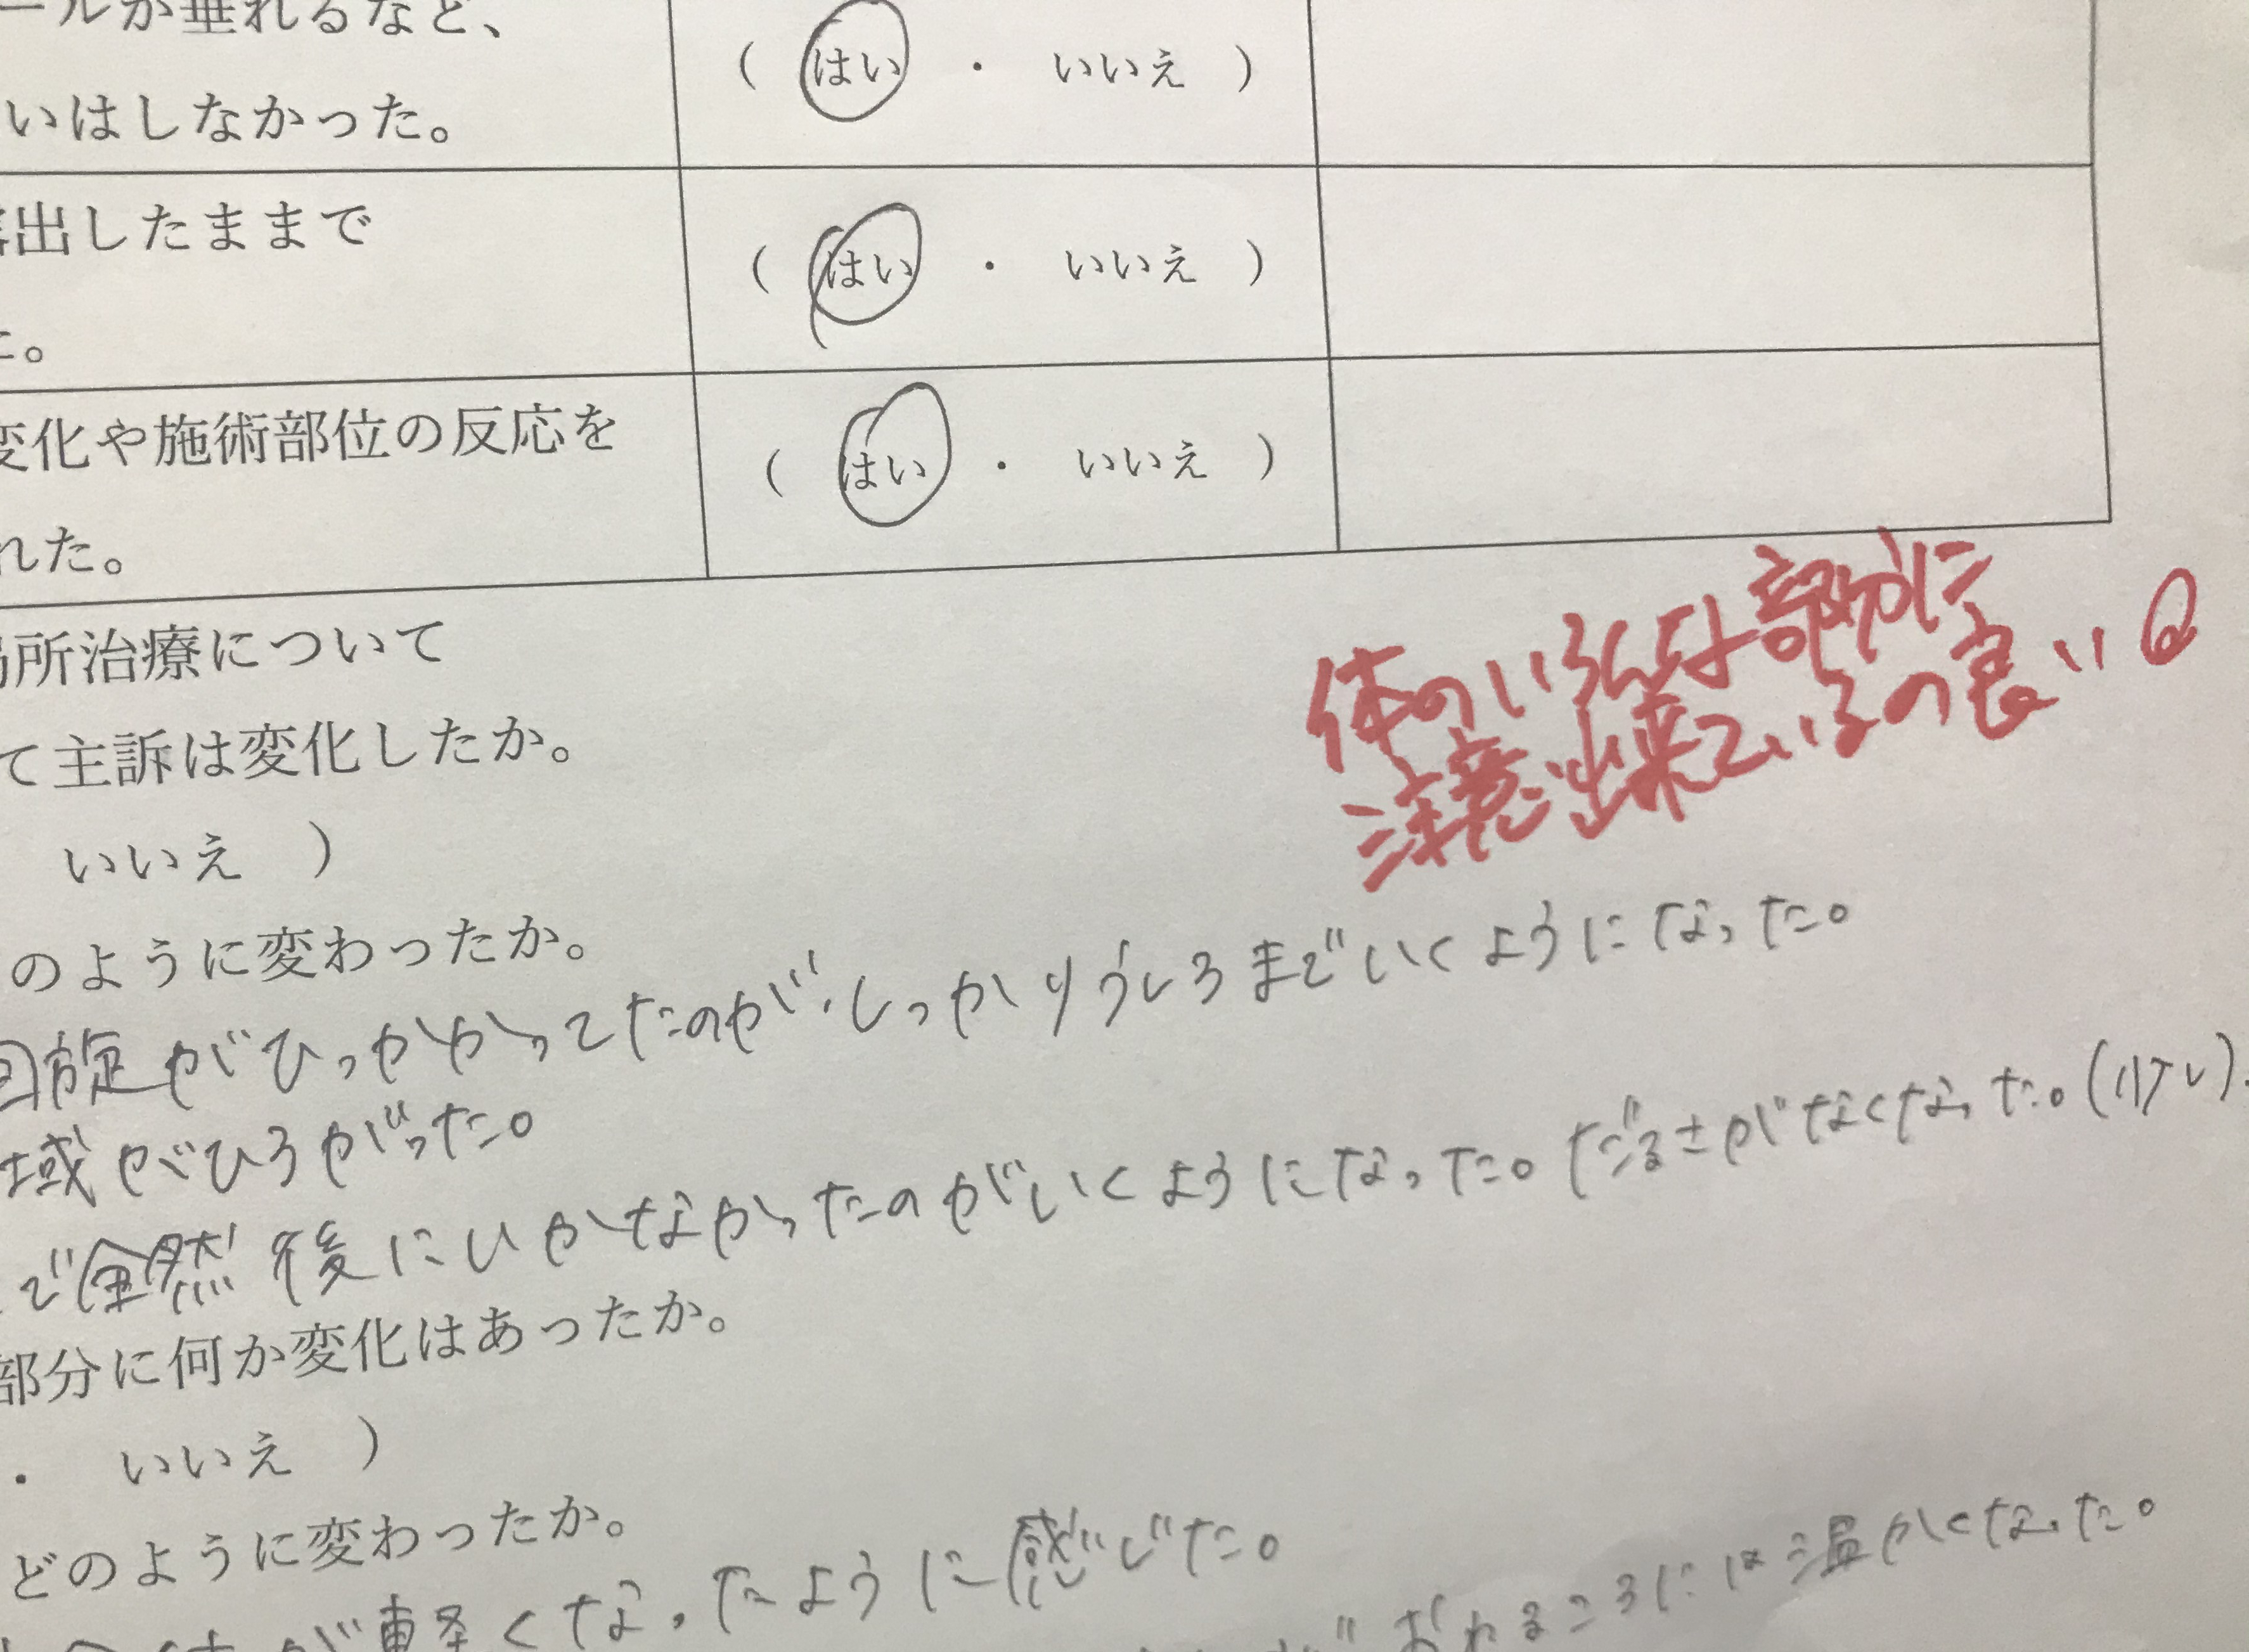 ールが垂れるなど、
いはしなかった。
( はい ・ いいえ )
出したままで
( はい ・ いいえ )
た。
変化や施術部位の反応を
( はい ・ いいえ )
れた。
所治療について
体のいろんな部分に
注意出来ているの良い
て主訴は変化したか。
いいえ )
のように変わったか。
回旋がひっかかってたのが、しっかりうしろまでいくようになった。
域がひろがった。
で全然後にいかなかったのがいくようになった。だるさがなくなった。
部分に何か変化はあったか。
・ いいえ )
どのように変わったか。
が軽くなったように感じた。
おわるころには温かくなった。